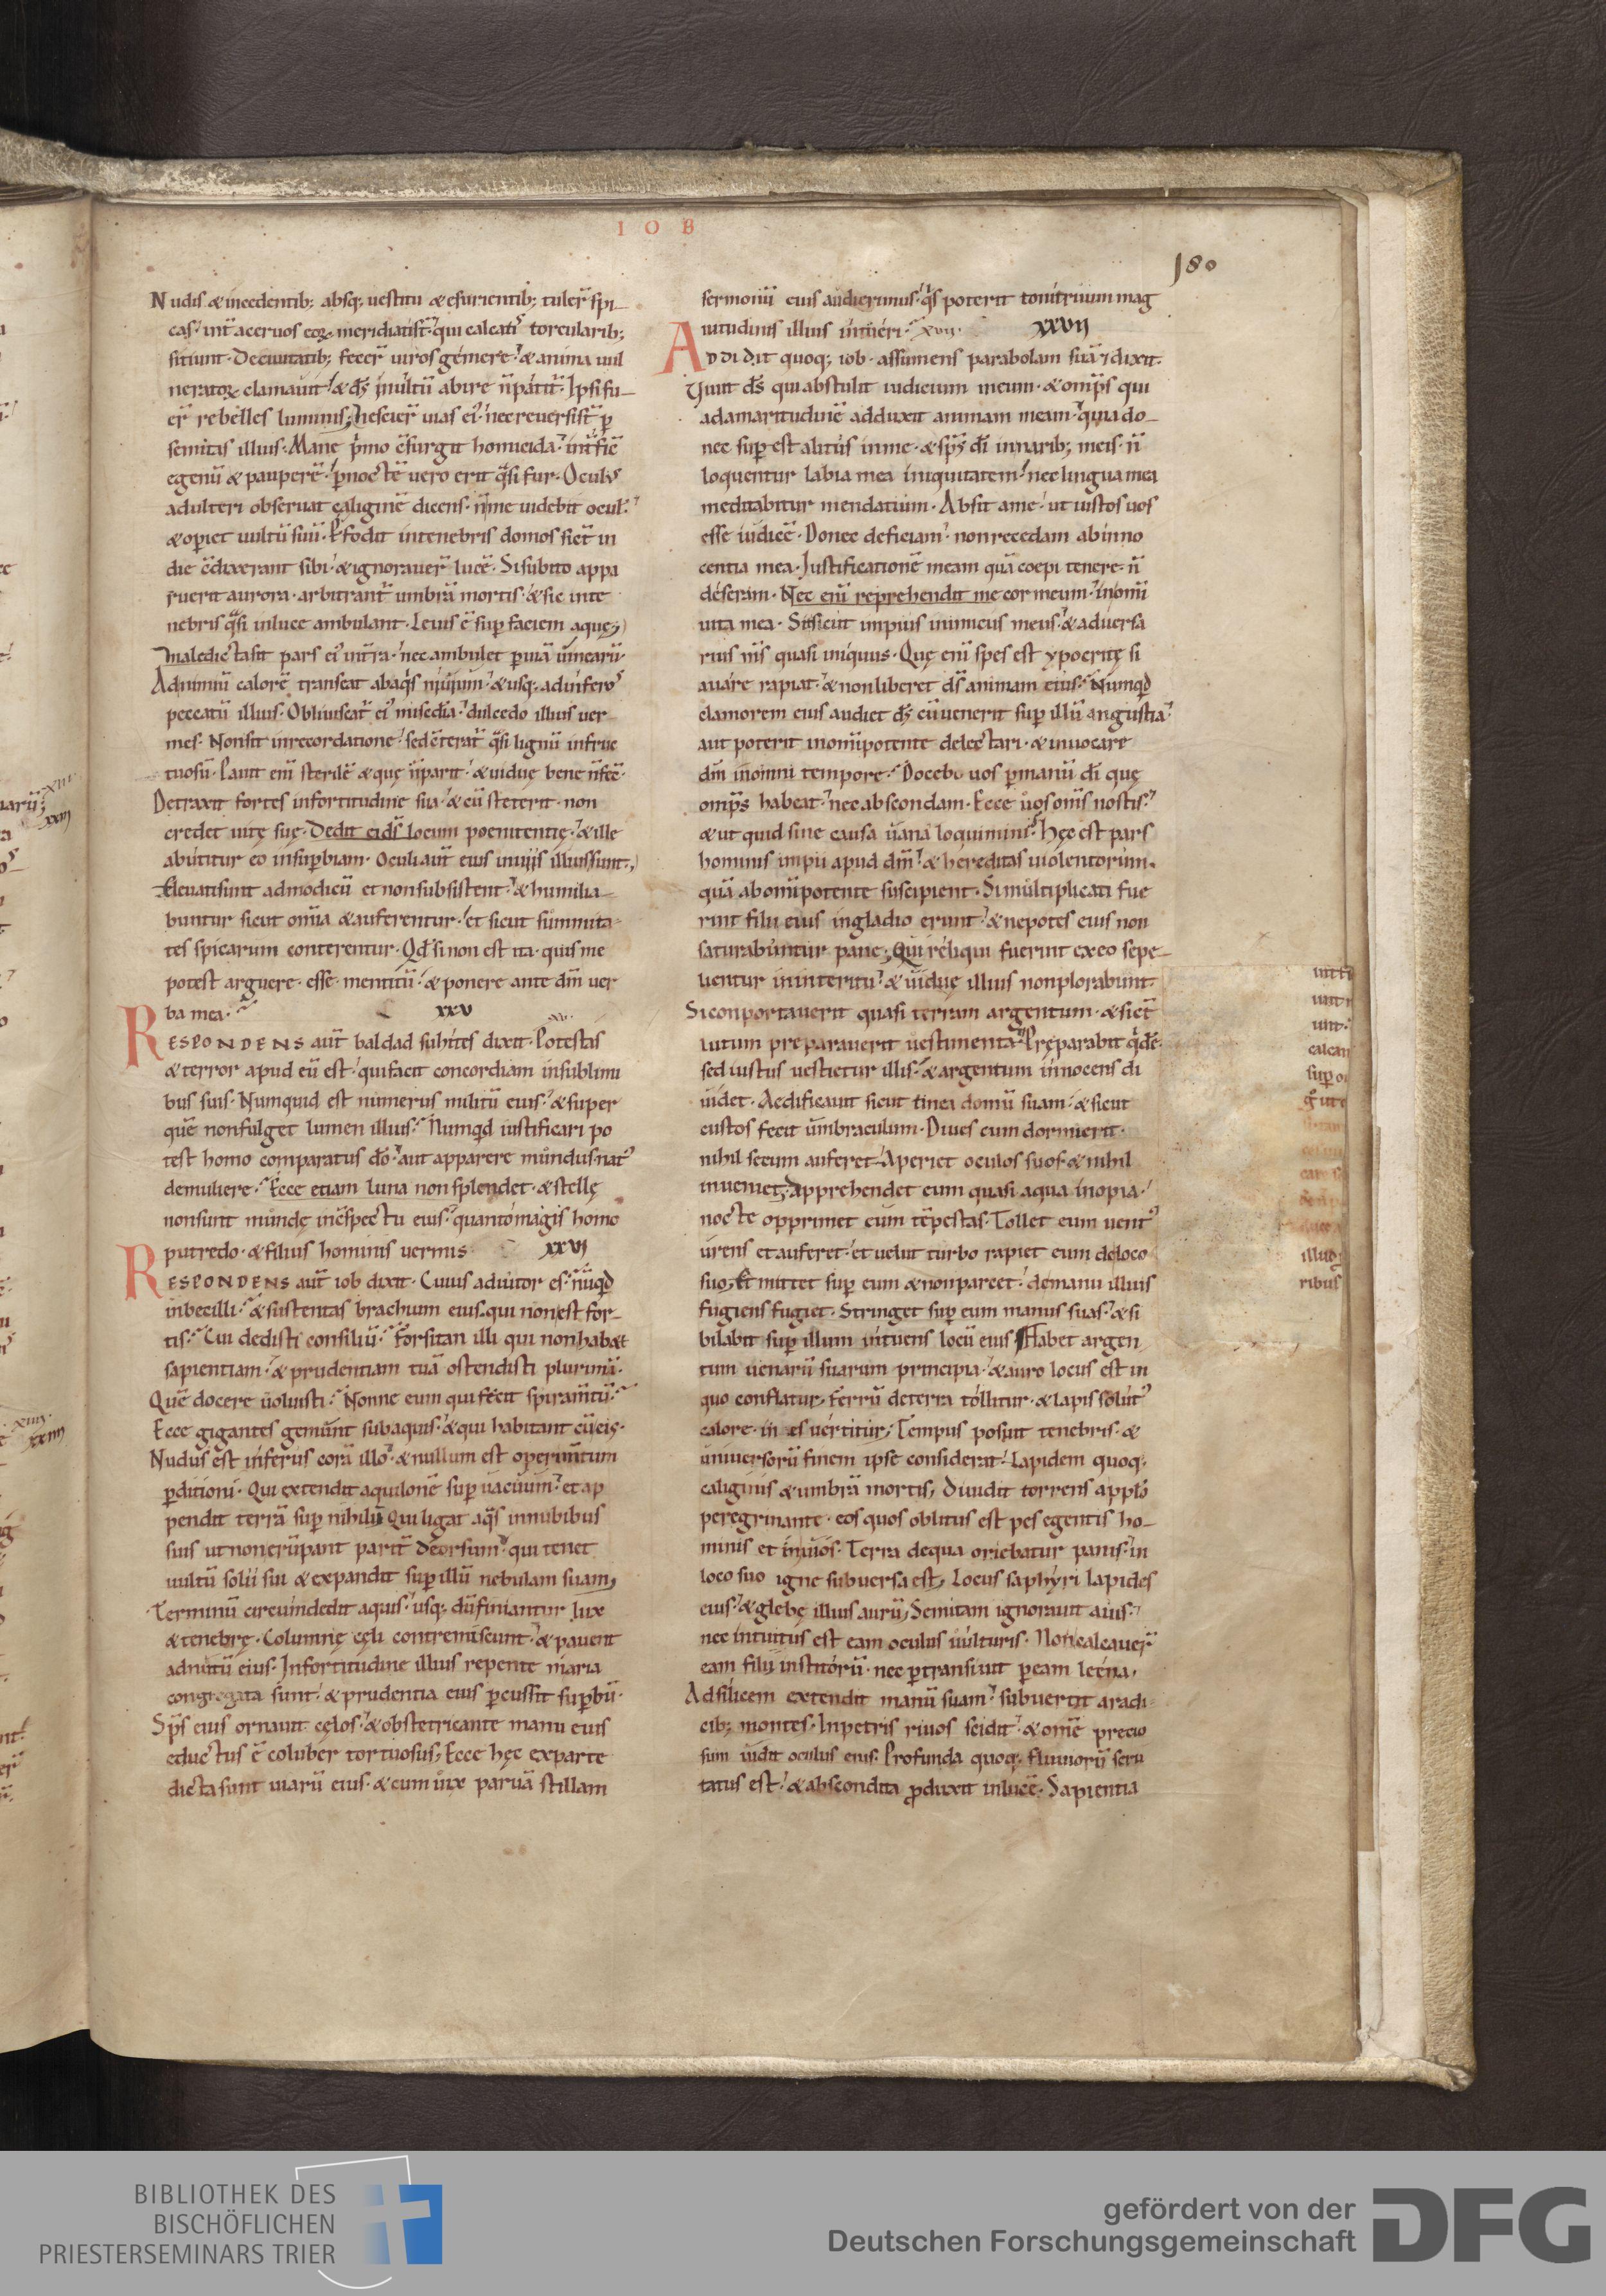 I O B
180
Nudis & incedentib; absq; uestitu & esurientib; tuler̄ spi–
cas· int̄ aceruos eoꝝ meridiati st̄· qui calcatis torcularib;
sitiunt· De ciuitatib; fecer̄ uiros gemere· & anima uul
neratoꝝ clamauit· & ds̄ inultū abire n̄ patit̄· Ipsi fu–
er̄ rebelles lumini; nescier̄ uias ei᾽· nec reuersi st̄ p̱
semitas illius· Mane p̄mo c̄surgit homicida· int̄ficē
egenū & pauperē· p̱ noctē uero erit q̄si fur· Oculus
adulteri obseruat caliginē dicens· n̄ me uidebit ocul᾽·
& operiet uultū suū· Perfodit in tenebris domos sicut in
die c̄dixerant sibi· & ignorauer̄ lucē· Si subito appa
ruerit aurora· arbitrant̄ umbrā mortis· & sic in te
nebris q̄si in luce ambulant· Leuis ē sup̱ faciem aquę;
maledicta sit pars ei᾽ in t̄ra· nec ambulet p̱ uiā uinearū·
Ad nimiū calorē transeat ab aq̄s niuium· & usq; ad inferos
peccatū illius· Obliuiscat̄ ei᾽ mis̄c̄dia· dulcedo illius uer
mes· Non sit in recordatione· sed c̄terat̄ q̄si lignū infruc
tuosū· Pauit eni͂ sterilē & quę n̄ parit· & uiduę bene n̄ fec̄·
Detraxit fortes in fortitudine sua· & cū steterit· non
credet uitę suę· Dedit ei ds̄ locum poenitentię· & ille
abutitur eo in sup̱biam· Oculi aut̄ eius in uiis illius sunt·
Eleuati sunt ad modicū et non subsistent· & humilia–
buntur sicut om̄ia & auferentur· et sicut summita–
tes spicarum conterentur· Qd̄ si non est ita· quis me
potest arguere· esse mentitū· & ponere ante dm̄ uer
ba mea· xxv
RESPONDENS aut̄ baldad suhites dixit· Potestas
& terror apud eū est· qui facit concordiam in sublimi
bus suis· Numquid est numerus militū eius· & super
quē non fulget lumen illius· Numqd iustificari po
test homo comparatus do͂· aut apparere mundus nat᾽
de muliere· Ecce etiam luna non splendet· & stellę
non sunt mundę in c̄spectu eius· quanto magis homo
putredo· & filius hominis uermis xxvi
RESPONDENS aut̄ iob dixit· Cuius adiutor es· nūqd
inbecilli· & sustentas brachium eius qui non est for–
tis· Cui dedisti consiliū· Forsitan illi qui non habet
sapientiam· & prudentiam tuā ostendisti plurimā·
Quē docere uoluisti· Nonne eum qui fecit spiram̄tū·
Ecce gigantes gemunt sub aquis· & qui habitant cū eis·
Nudus est inferus corā illo· & nullum est operim̄tum
p̱ditioni· Qui extendit aquilonē sup̱ uacuum· et ap
pendit terrā sup̱ nihilū Qui ligat aq̄s in nubibus
suis ut non erūpant parit̄ deorsum· qui tenet
uultū solii sui & expandit sup̱ illū nebulam suam;
Terminū circundedit aquis· usq; dū finiantur lux
& tenebrę· Columnę cęli contremiscunt· & pauent
ad nutū eius· In fortitudine illius repente maria
congregata sunt· & prudentia eius p̱cussit sup̱bū·
Sp̄s eius ornauit cęlos· & obstetricante manu eius
eductus ē coluber tortuosus; Ecce hęc ex parte
dicta sunt uiarū eius· & cum uix paruā stillam
sermonū eius audierimus· q̄s poterit tonitruum mag
nitudinis illius intueri· xvii· xxvii
ADDIDIT quoq; iob· assumens parabolam suā & dixit·
Viuit ds̄ qui abstulit iudicium meum· & omp̄s qui
ad amaritudinē adduxit animam meam· quia do–
nec sup̱est alitus in me· & sp̄s di͂ in narib; meis· n̄
loquentur labia mea iniquitatem· nec lingua mea
meditabitur mendatium· Absit a me· ut iustos uos
esse iudicē· Donec deficiam· non recedam ab inno
centia mea· Iustificationē meam quā coepi tenere· n̄
deseram· Nec eni͂ reprehendit me cor meum· in om̄i
uita mea· Sit sicut impius inimicus meus· & aduersa
rius m̄s quasi iniquus· Quę eni͂ spes est ypocritę si
auare rapiat· & non liberet ds̄ animam eius· Numqd
clamorem eius audiet ds̄ cū uenerit sup̱ illū angustia·
aut poterit in om̄ipotente delectari· & inuocare
dm̄ in omni tempore· Docebo uos p̱ manū di͂ quę
omp̄s habeat· nec abscondam· Ecce uos om̄s nostis·
& ut quid sine causa uana loquimini· Hęc est pars
hominis impii apud dm̄· & hereditas uiolentorum·
quā ab om̄ipotente suscipient· Si multiplicati fue
rint filii eius in gladio erunt· & nepotes eius non
saturabuntur pane; Qui reliqui fuerint ex eo sepe–
lientur in interitu· & uiduę illius non plorabunt·
Si conportauerit quasi terram argentum· & sicut
lutum preparauerit uestimenta· Pręparabit q̄dē·
sed iustus uestietur illis· & argentum innocens di
uidet· Aedificauit sicut tinea domū suam· & sicut
custos fecit umbraculum· Diues cum dormierit·
nihil secum auferet· Aperiet oculos suos· & nihil
inueniet; Apprehendet eum quasi aqua inopia·
nocte opprimet eum tēpestas· Tollet eum uent᾽
urens et auferet· et uelut turbo rapiet eum de loco
suo; Et mittet sup̱ eum & non parcet· de manu illius
fugiens fugiet· Stringet sup̱ eum manus suas· & si
bilabit sup̱ illum intuens locū eius Habet argen
tum uenarū suarum principia· & auro locus est in
quo conflatur; Ferrū de terra tollitur· & lapis solut᾽
calore· in aes uertitur; Tempus posuit tenebris· &
uniuersorū finem ipse considerat· Lapidem quoq;
caliginis & umbrā mortis; Diuidit torrens a pplo͂
peregrinante· eos quos oblitus est pes egentis ho–
minis et inuios· Terra de qua oriebatur panis· in
loco suo igne subuersa est; Locus saphyri lapides
eius· & glebę illius aurū; Semitam ignorauit auis·
nec intuitus est eam oculus uulturis· Non calcauer̄
eam filii institorū· nec p̱transiuit p̱ eam leena·
Ad silicem extendit manū suam· subuertit a radi–
cib; montes· In petris riuos scidit· & om̄e precio
sum uidit oculus eius· Profunda quoq; fluuiorū scru
tatus est· & abscondita ꝓduxit in lucē· Sapientia
calcar
illud
ribus
BIBLIOTHEK DES
BISCHÖFLICHEN
PRIESTERSEMINARS TRIER
gefördert von der
Deutschen Forschungsgemeinschaft
DFG